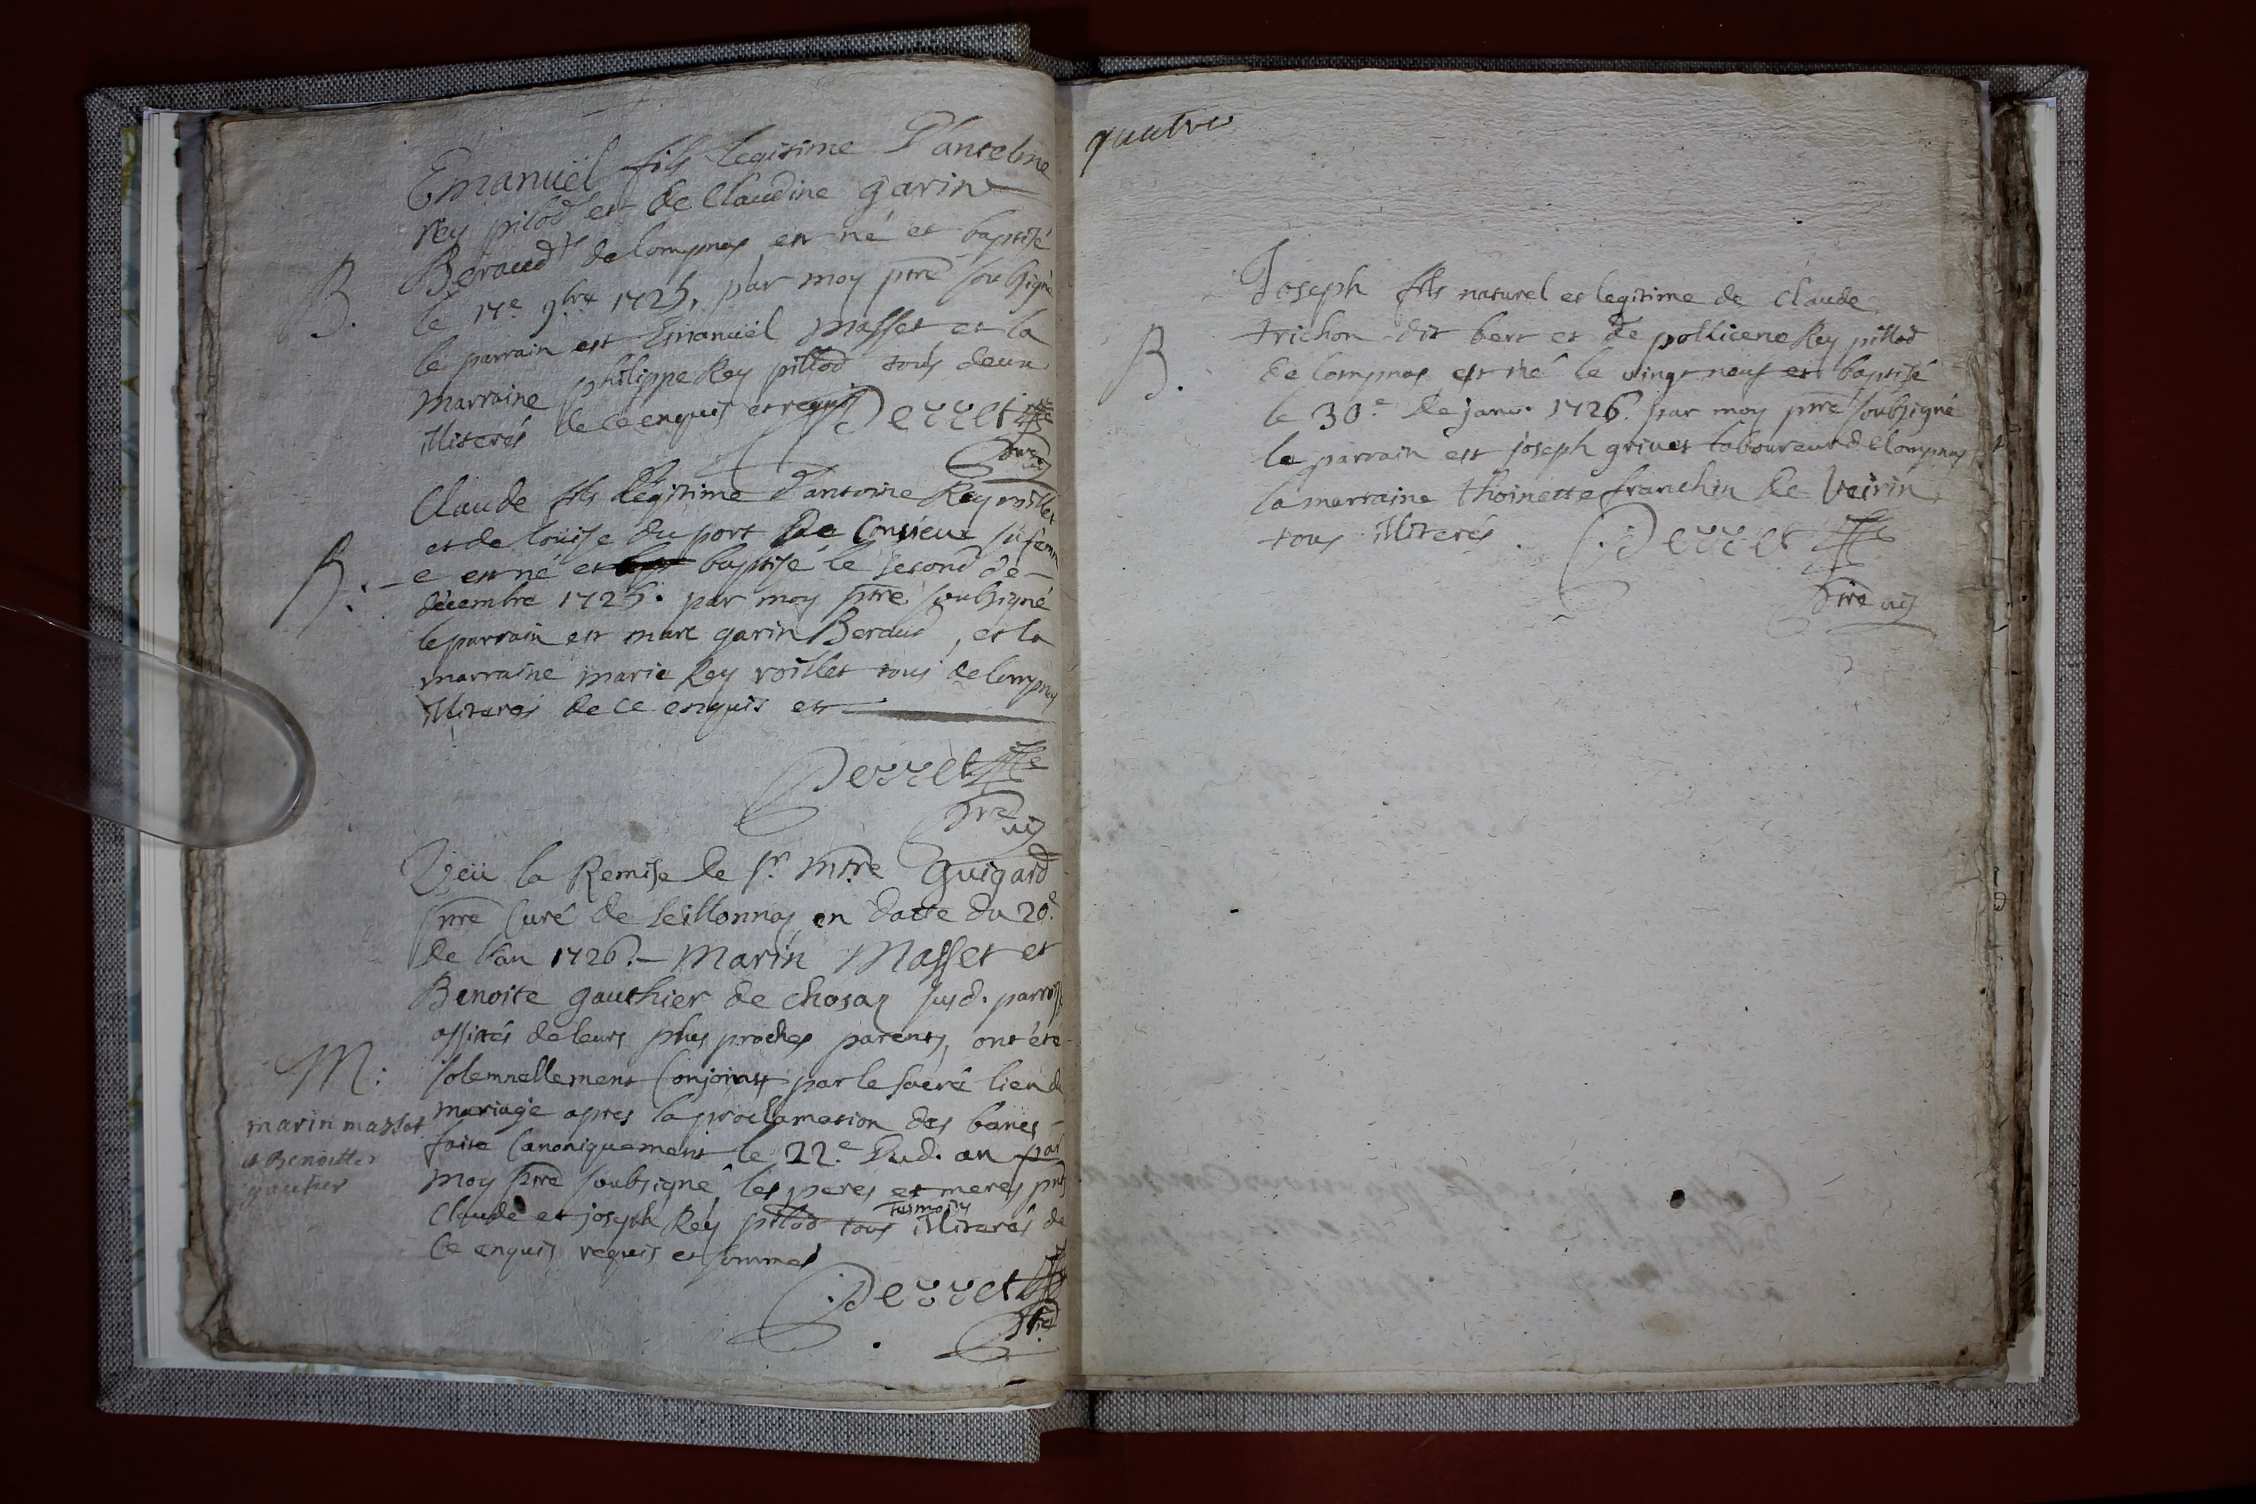 Emanüel fils legitime D'antelme
rey pilod et de Claudine garin
Beraud de lompnas est né et baptisé
B.
le 17e 9bre 1725, par moy ptre soubsigné
le parrain est Emanüel Masset et la
marraine philippe Rey pillod tous deux
illiterés de ce enquis et requis Perret
ptre
Claude fils légitime d'antoine Rey roillet
et de loüise du port de Conzieux sa femm
B.
e est né et baptisé le second de
décembre 1725. par moy ptre soubsigné
le parrain est marc garin Beraud, et la
marraine marie Rey roillet tous de lompnas
illiterés de ce enquis et
Perret
ptre
Veü la Remise de Sr. Mtre Guigard
ptre Curé de Seillonnas en datte du 20e
de l'an 1726. Marin Masset et
Benoite gauthier de chosas susd. parroisse
assistés de leurs plus proches parents, ont été
M:
solemnellement Conjoints par le sacré lien du
mariage apres la proclamation des bancs
marin masset
et Benoitte
gautier
faite Canoniquement le 22.e dud. an par
moy ptre soubsigné, les peres et meres pnts
Claude et joseph Rey pilod tous tesmoins illiterés de
Ce enquis requis et sommes
Perret
quatre
Joseph fils naturel et legitime de Claude
trichon dit bert et de pollicene Rey pillod
B.
de lompnas est né le vingt neuf et baptisé
le 30.e de janv. 1726. par moy ptre soubsigné
le parrain est joseph grivet laboureur de lompnas et
la marraine thoinette franchin de Veirin
tous illiterés. Perret
ptre